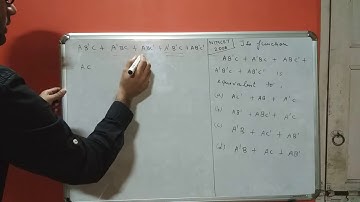 AB'C + A'BC + ABC' + A'B'C + AB'C'
AC
The function
AB'C + A'BC + ABC' +
A'B'C + AB'C' is
equivalent to :
(a) AC' + AB + A'C
(b) AB' + AC' + A'C
(c) A'B + AC' + AB'
(d) A'B + AC + AB'